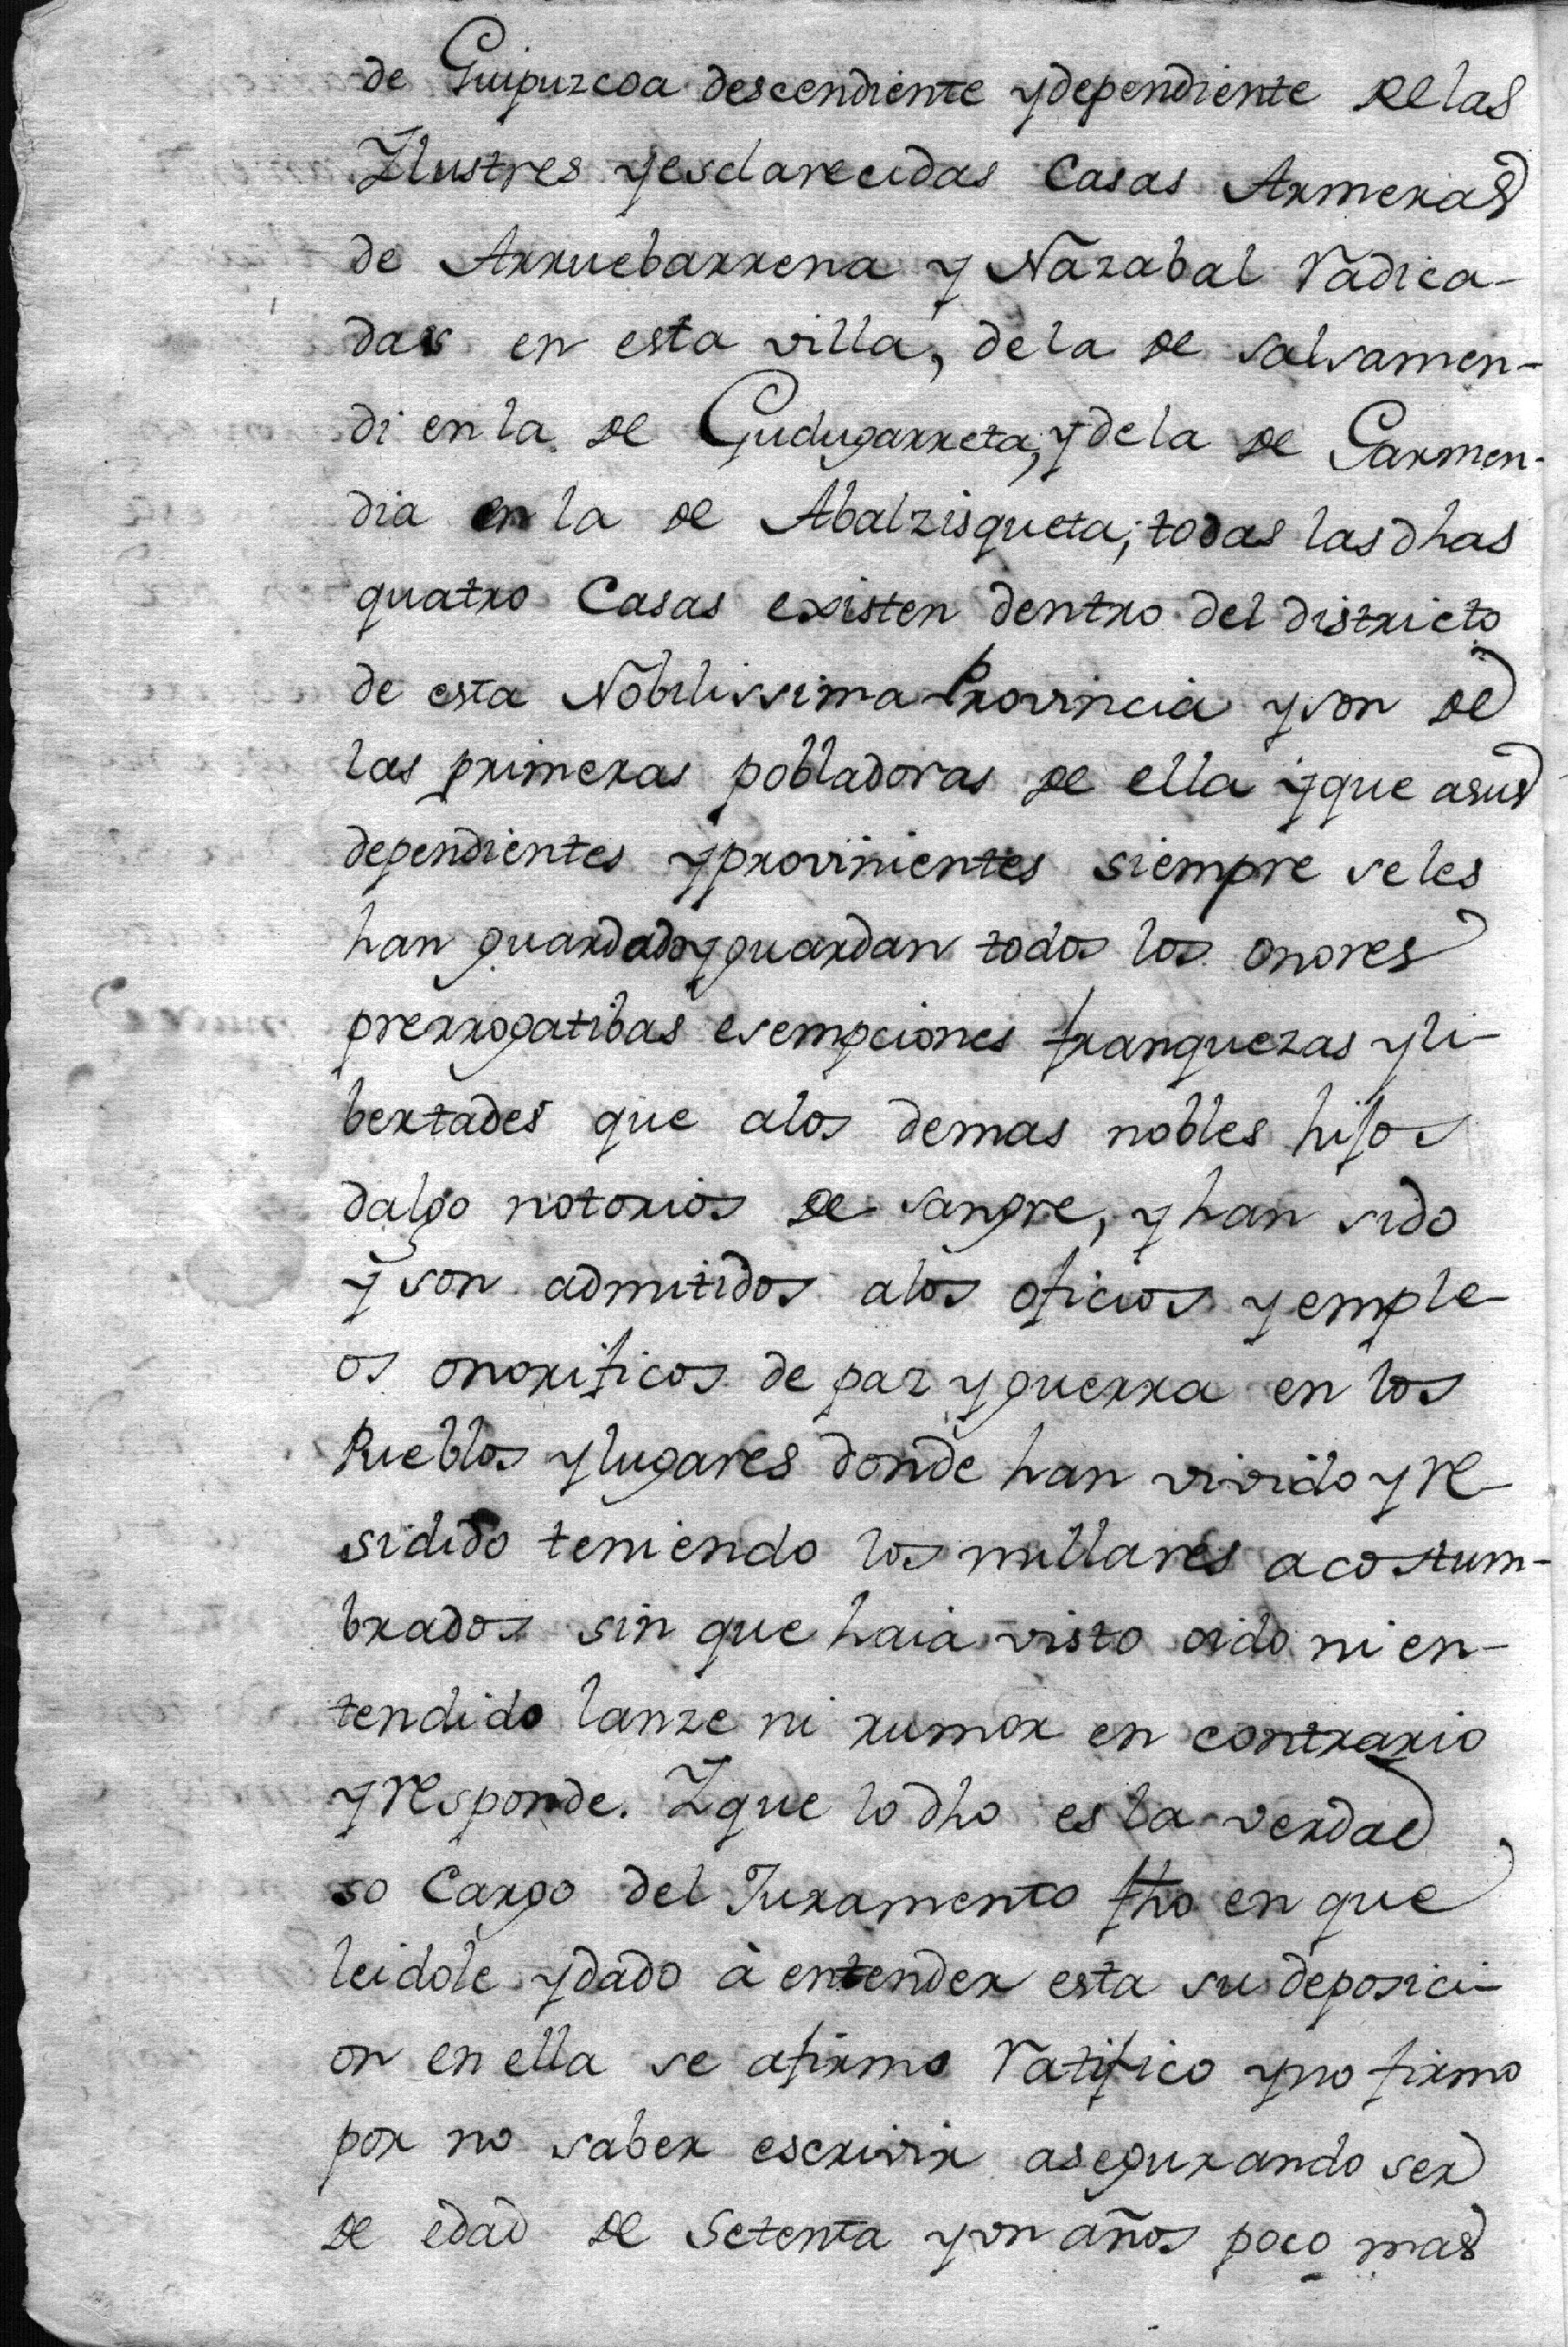 de Guipuzcoa descendiente y dependiente de las
Ylustres y esclarecidas Casas Armeras
de Arruebarrena y Nazabal radica-
das en esta villa, de la de Salsamen-
di en la de Gudugarreta, y de la de Garmen-
dia en la de Abalzisqueta; todas las dhas
quatro Casas existen dentro del districto
de esta Nobilissima Provincia y son de
las primeras pobladoras de ella y que a sus
dependientes y provinientes siempre se les
han guardado y guardan todos los onores
prerrogatibas esempciones franquezas y li-
bertades que a los demas nobles hijos
dalgo notorios de sangre, y han sido
y son admitidos a los oficios y emple-
os onorificos de paz y guerra en los
Pueblos y lugares donde han vivido y re-
sidido teniendo los millares acostum-
brados sin que haia visto oido ni en-
tendido lanze ni rumor en contrario
y responde. Y que lo dho es la verdad
so Cargo del Juramento fho en que
leidole y dado à entender esta su deposici-
on en ella se afirmo ratifico y no firmo
por no saber escrivir asegurando ser
de edad de Setenta y un años poco mas